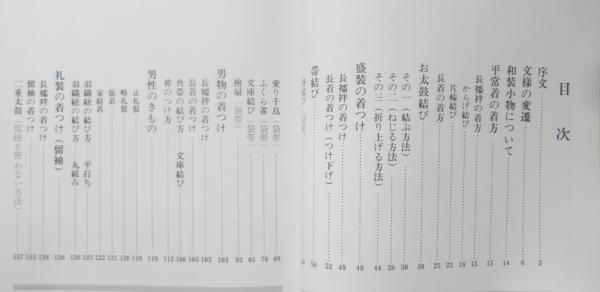 目次
序文 3
文様の変遷 6
和装小物について 14
平常着の着方 15
長襦袢の着方 15
からげ結び 18
片輪結び 22
長着の着方 25
お太鼓結び 30
その一（結ぶ方法） 30
その二（ねじる方法） 38
その三（折り上げる方法） 44
盛装の着つけ 49
長襦袢の着つけ 49
長着の着つけ（つけ下げ） 52
帯結び 58
変り千鳥（袋帯） 69
ふくら雀（袋帯） 79
文庫結び（袋帯） 85
檜扇（袋帯） 93
男物の着つけ 103
長襦袢の着つけ 103
長着の着つけ 105
角帯の結び方 文庫結び 108
袴のつけ方 112
男性のきもの 119
正礼装 119
略礼装 120
張着 121
家庭着 122
羽織紐の結び方 平打ち 123
羽織紐の結び方 丸組み 126
礼装の着つけ（留袖） 128
長襦袢の着つけ 128
留袖の着つけ 133
二重太鼓（仮紐を使わない方法） 137